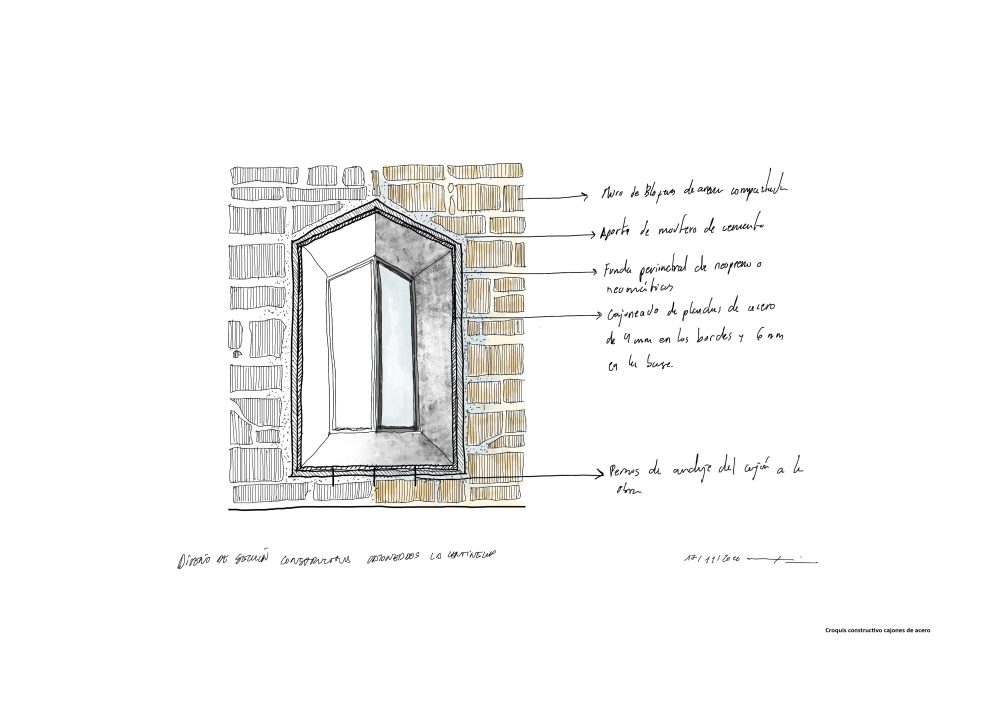 Muro de Bloques de arena compactada
Aporte de mortero de cemento
Funda perimetral de neopreno o
neumáticos
Cajoneado de planchas de acero
de 4 mm en los bordes y 6 mm
en la base.
Pernos de anclaje del cajón a la
obra
DISEÑO DE SECCIÓN CONSTRUCTIVA CAJONEADOS LA
17/11/2020
Croquis constructivo cajones de acero